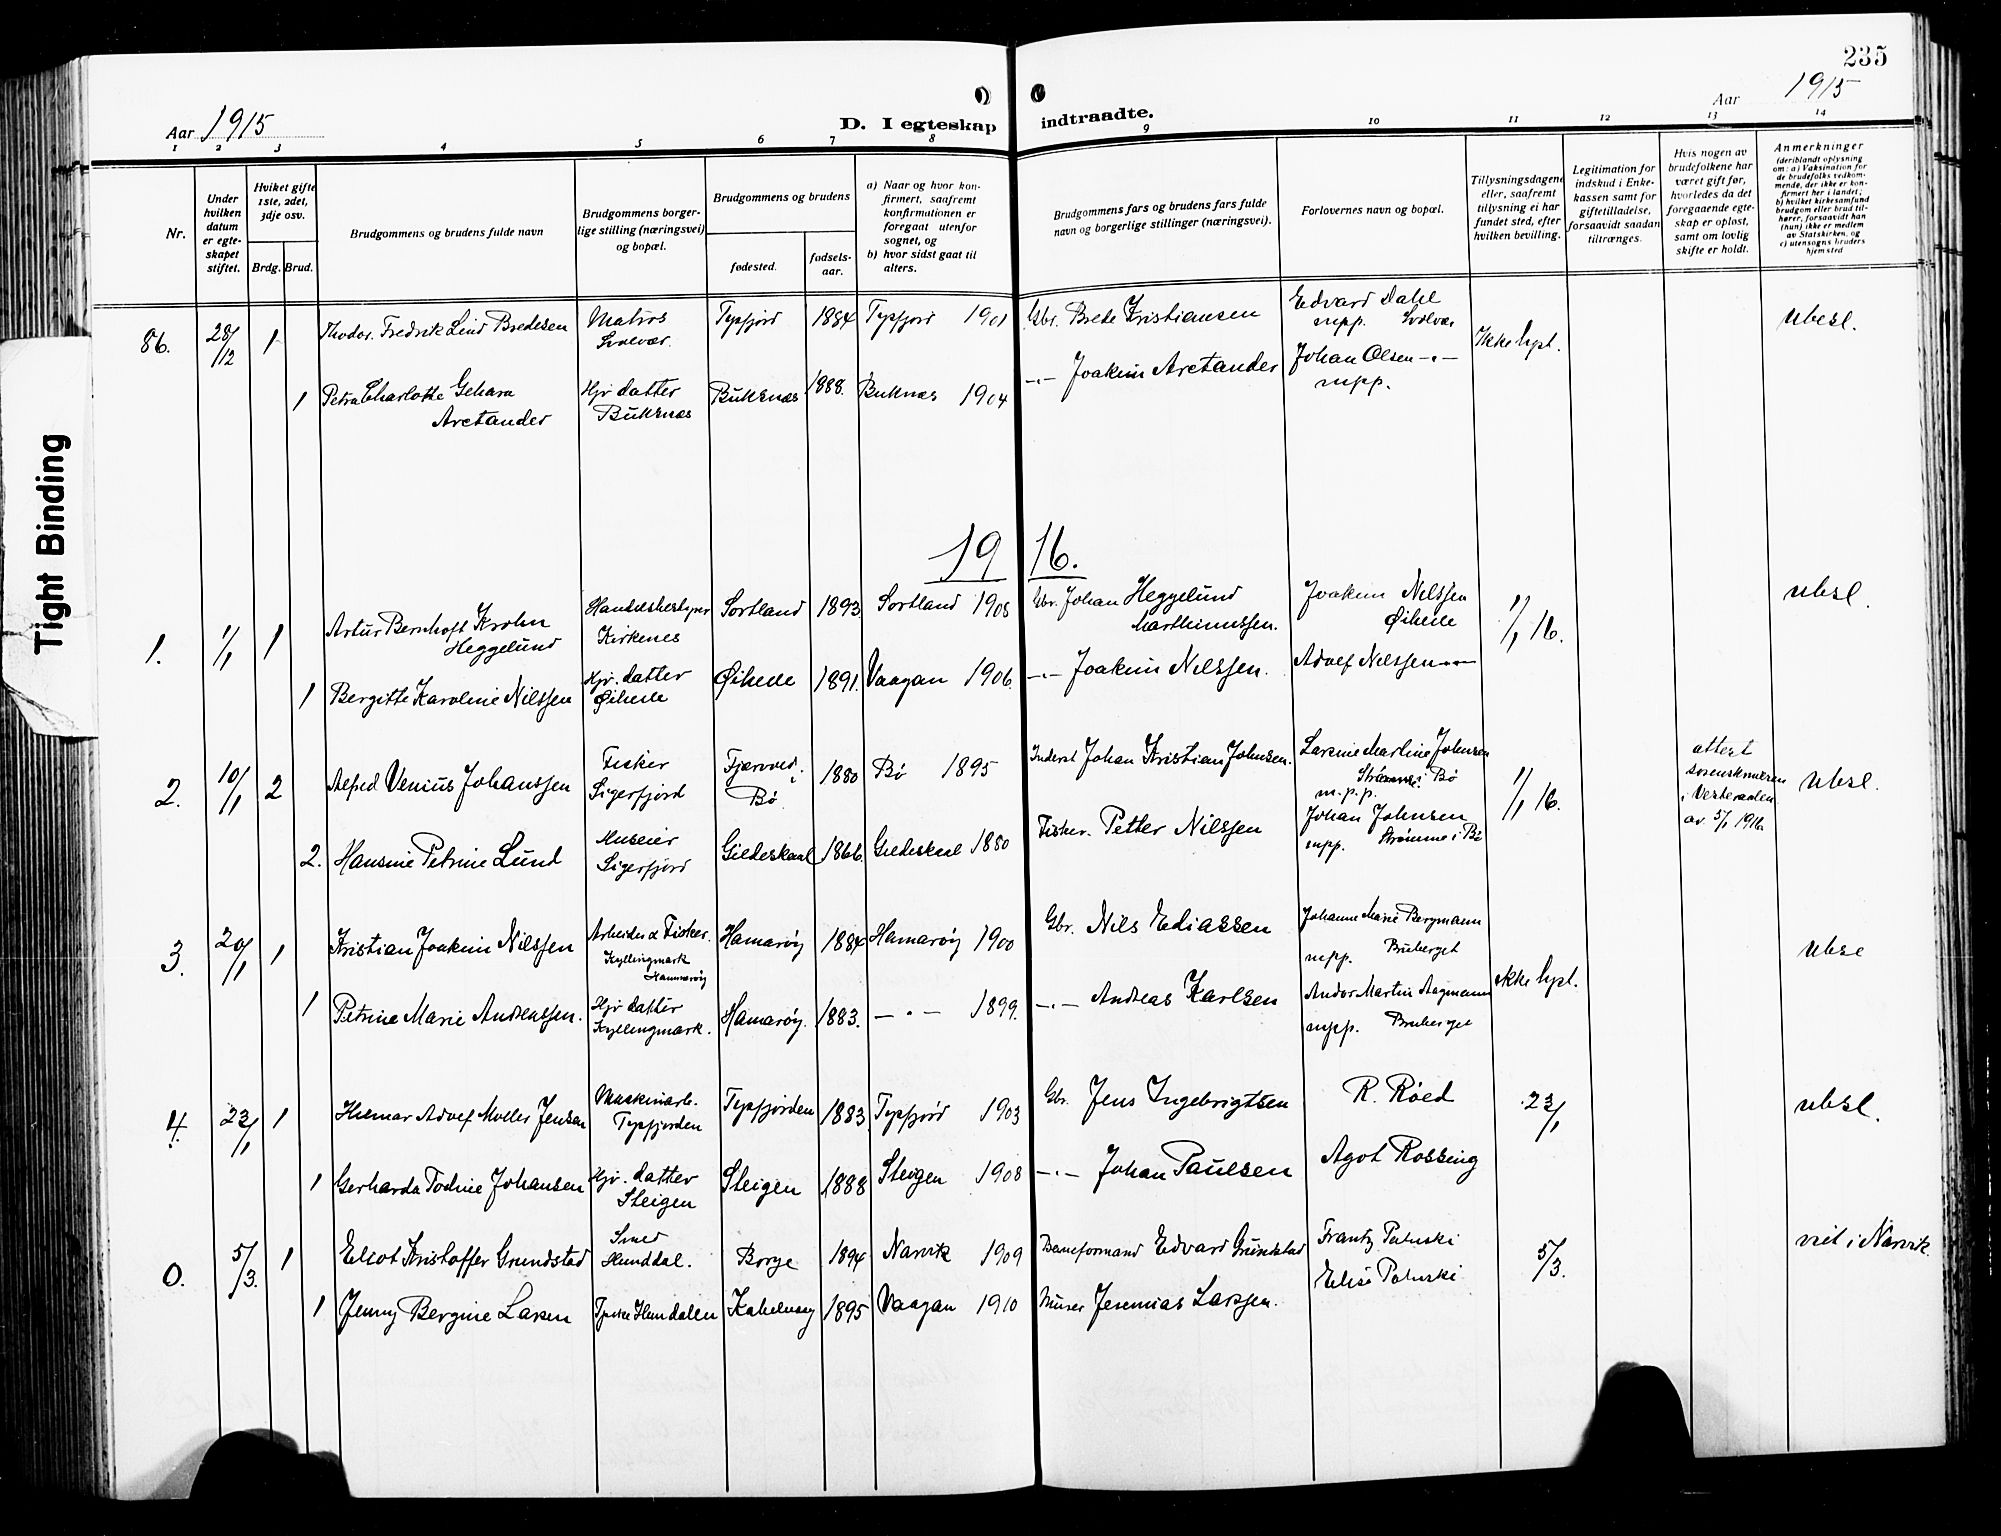 235
Aar 1915
D. I egteskap indtraadte.
Aar 1915
1 2 3 4 5 6 7 8 9 10 11 12 13 14
Nr.
Under hvilken datum er egteskapet stiftet.
Hviket gifte 1ste, 2det, 3dje osv.
Brdg. Brud.
Brudgommens og brudens fulde navn
Brudgommens borgerlige stilling (næringsvei) og bopæl.
Brudgommens og brudens
fødested.
fødselsaar.
a) Naar og hvor konfirmert, saafremt konfirmationen er foregaat utenfor sognet, og
b) hvor sidst gaat til alters.
Brudgommens fars og brudens fars fulde navn og borgerlige stillinger (næringsvei).
Forlovernes navn og bopæl.
Tillysningsdagene eller, saafremt tillysning ei har fundet sted, efter hvilken bevilling.
Legitimation for indskud i Enkekassen samt for giftetilladelse, forsaavidt saadan tiltrænges.
Hvis nogen av brudefolkene har været gift før, hvorledes da det foregaaende egteskap er opløst, samt om lovlig skifte er holdt.
Anmerkninger (deriblandt oplysning om: a) Vaksination for de brudefolks vedkommende, der ikke er konfirmert her i landet; b) hvilket kirkesamfund brudgom eller brud tilhører, forsaavidt han (hun) ikke er medlem av Statskirken, og c) utensogns bruders hjemsted
Tight Binding
86. 28/12 1 Thodor. Fredrik Lind Bredesen Matros Svolvær. Tysfjord 1884 Tysfjord 1901 Gbr. Brede Kristiansen Edvard Dahl mpp. Svolvær Ikke lyst. ubesl.
1 Petra Charlotte Gehara Arctander Hjv datter Buknæs Buknæs 1888. Buknæs 1904 -"- Joakim Arctander Johan Olsen -"- mpp.
1916.
1. 1/1 1 Artur Bernhoft Krohn Heggelund Handelsbestyrer Kirkenes Sortland 1893 Sortland 1908 Gbr. Johan Heggelund Marthinussen. Joakim Nilssen Øihelle 1/1 16. ubesl.
1 Bergitte Karoline Nilssen Hjv. datter Øihelle Øihelle 1891. Vaagan 1906. -"- Joakim Nilssen. Adolf Nilssen -"-
2. 10/1 2 Alfred Venius Johanssen Fisker Sigerfjord i Bø. 1880 Bø 1895 Inderst Johan Kristian Johnsen. Larsine Marline Johnsen Strømme i Bø m.p.p. 1/1 16. attest sorenskriveren i Vesteraalen av 5/1 1916 ubesl.
2. Hansine Petrine Lund Huseier Sigerfjord Gildeskaal 1866. Gildeskaal 1880 Fisker. Petter Nilssen Johan Johnsen mpp. Strømme i Bø
3. 20/1 1 Kristian Joakim Nilssen Arbeider & Fisker. Kyllingmark Hammerøy Hamarøy 1884 Hamarøy 1900 Gbr. Nils Ediassen Johanne Marie Bergmann mpp. Bruberget Ikke lyst. ubesl
1 Petrine Marie Andreassen. Hjv datter Kyllingmark. Hamarøy. 1883. -"- 1899. -"- Andreas Karlsen Andor Martin Aagmann mpp. Bruberget
4. 23/1 1 Hilmar Adolf Møller Jensen Maskinarb. Tysfjorden Tysfjorden 1883. Tysfjord 1903 Gbr. Jens Ingebrigtsen R. Røed 23/1 ubesl.
1 Gerharda Todine Johansen Hjv. datter Steigen Steigen 1888 Steigen 1908 -"- Johan Paulsen Agot Rossing
0. 5/3. 1 Eliot Kristoffer Grundstad Smed Hunddal. Borge 1894 Narvik 1909 Baneformand Edvard Grundstad Frantz Paluski 5/3. viet i Narvik.
1 Jenny Bergine Larsen Hundalen Kabelvaag 1895 Vaagan 1910 Murer Jeremias Larssen. Elise Paluski